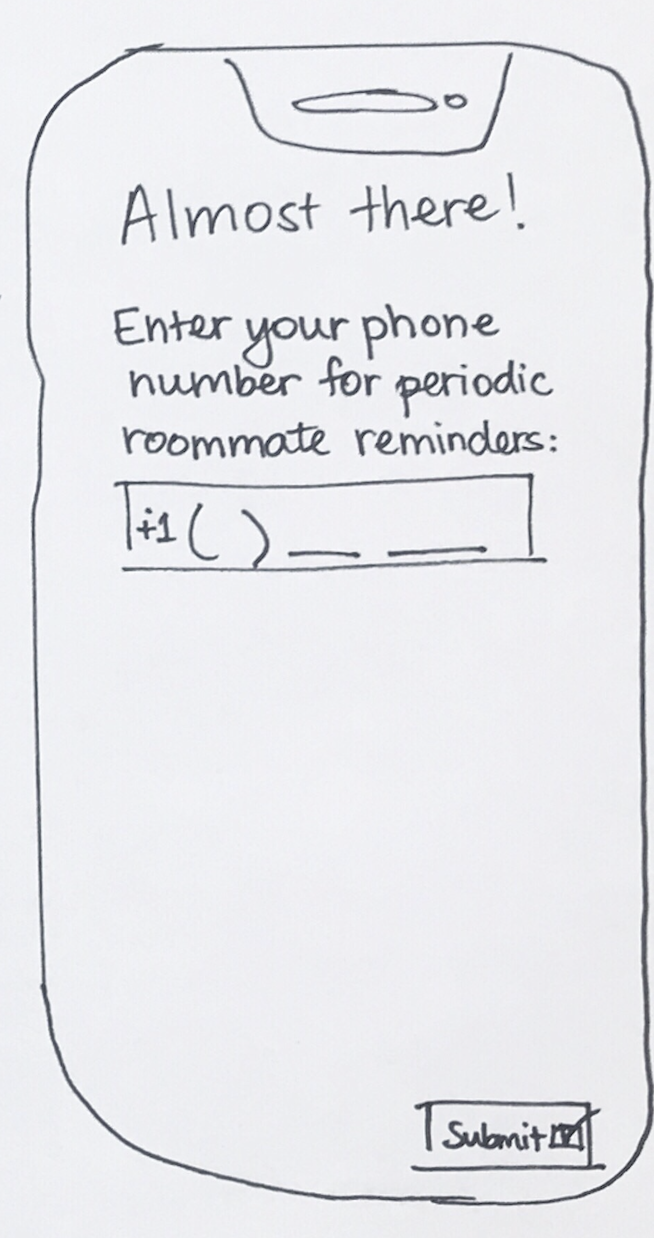 Almost there!
Enter your phone
number for periodic
roommate reminders:
+1 ( ) __ __
Submit